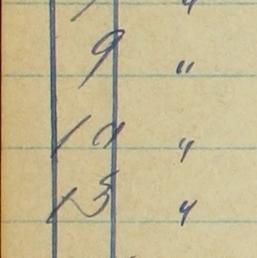 9 "
10 "
13 "